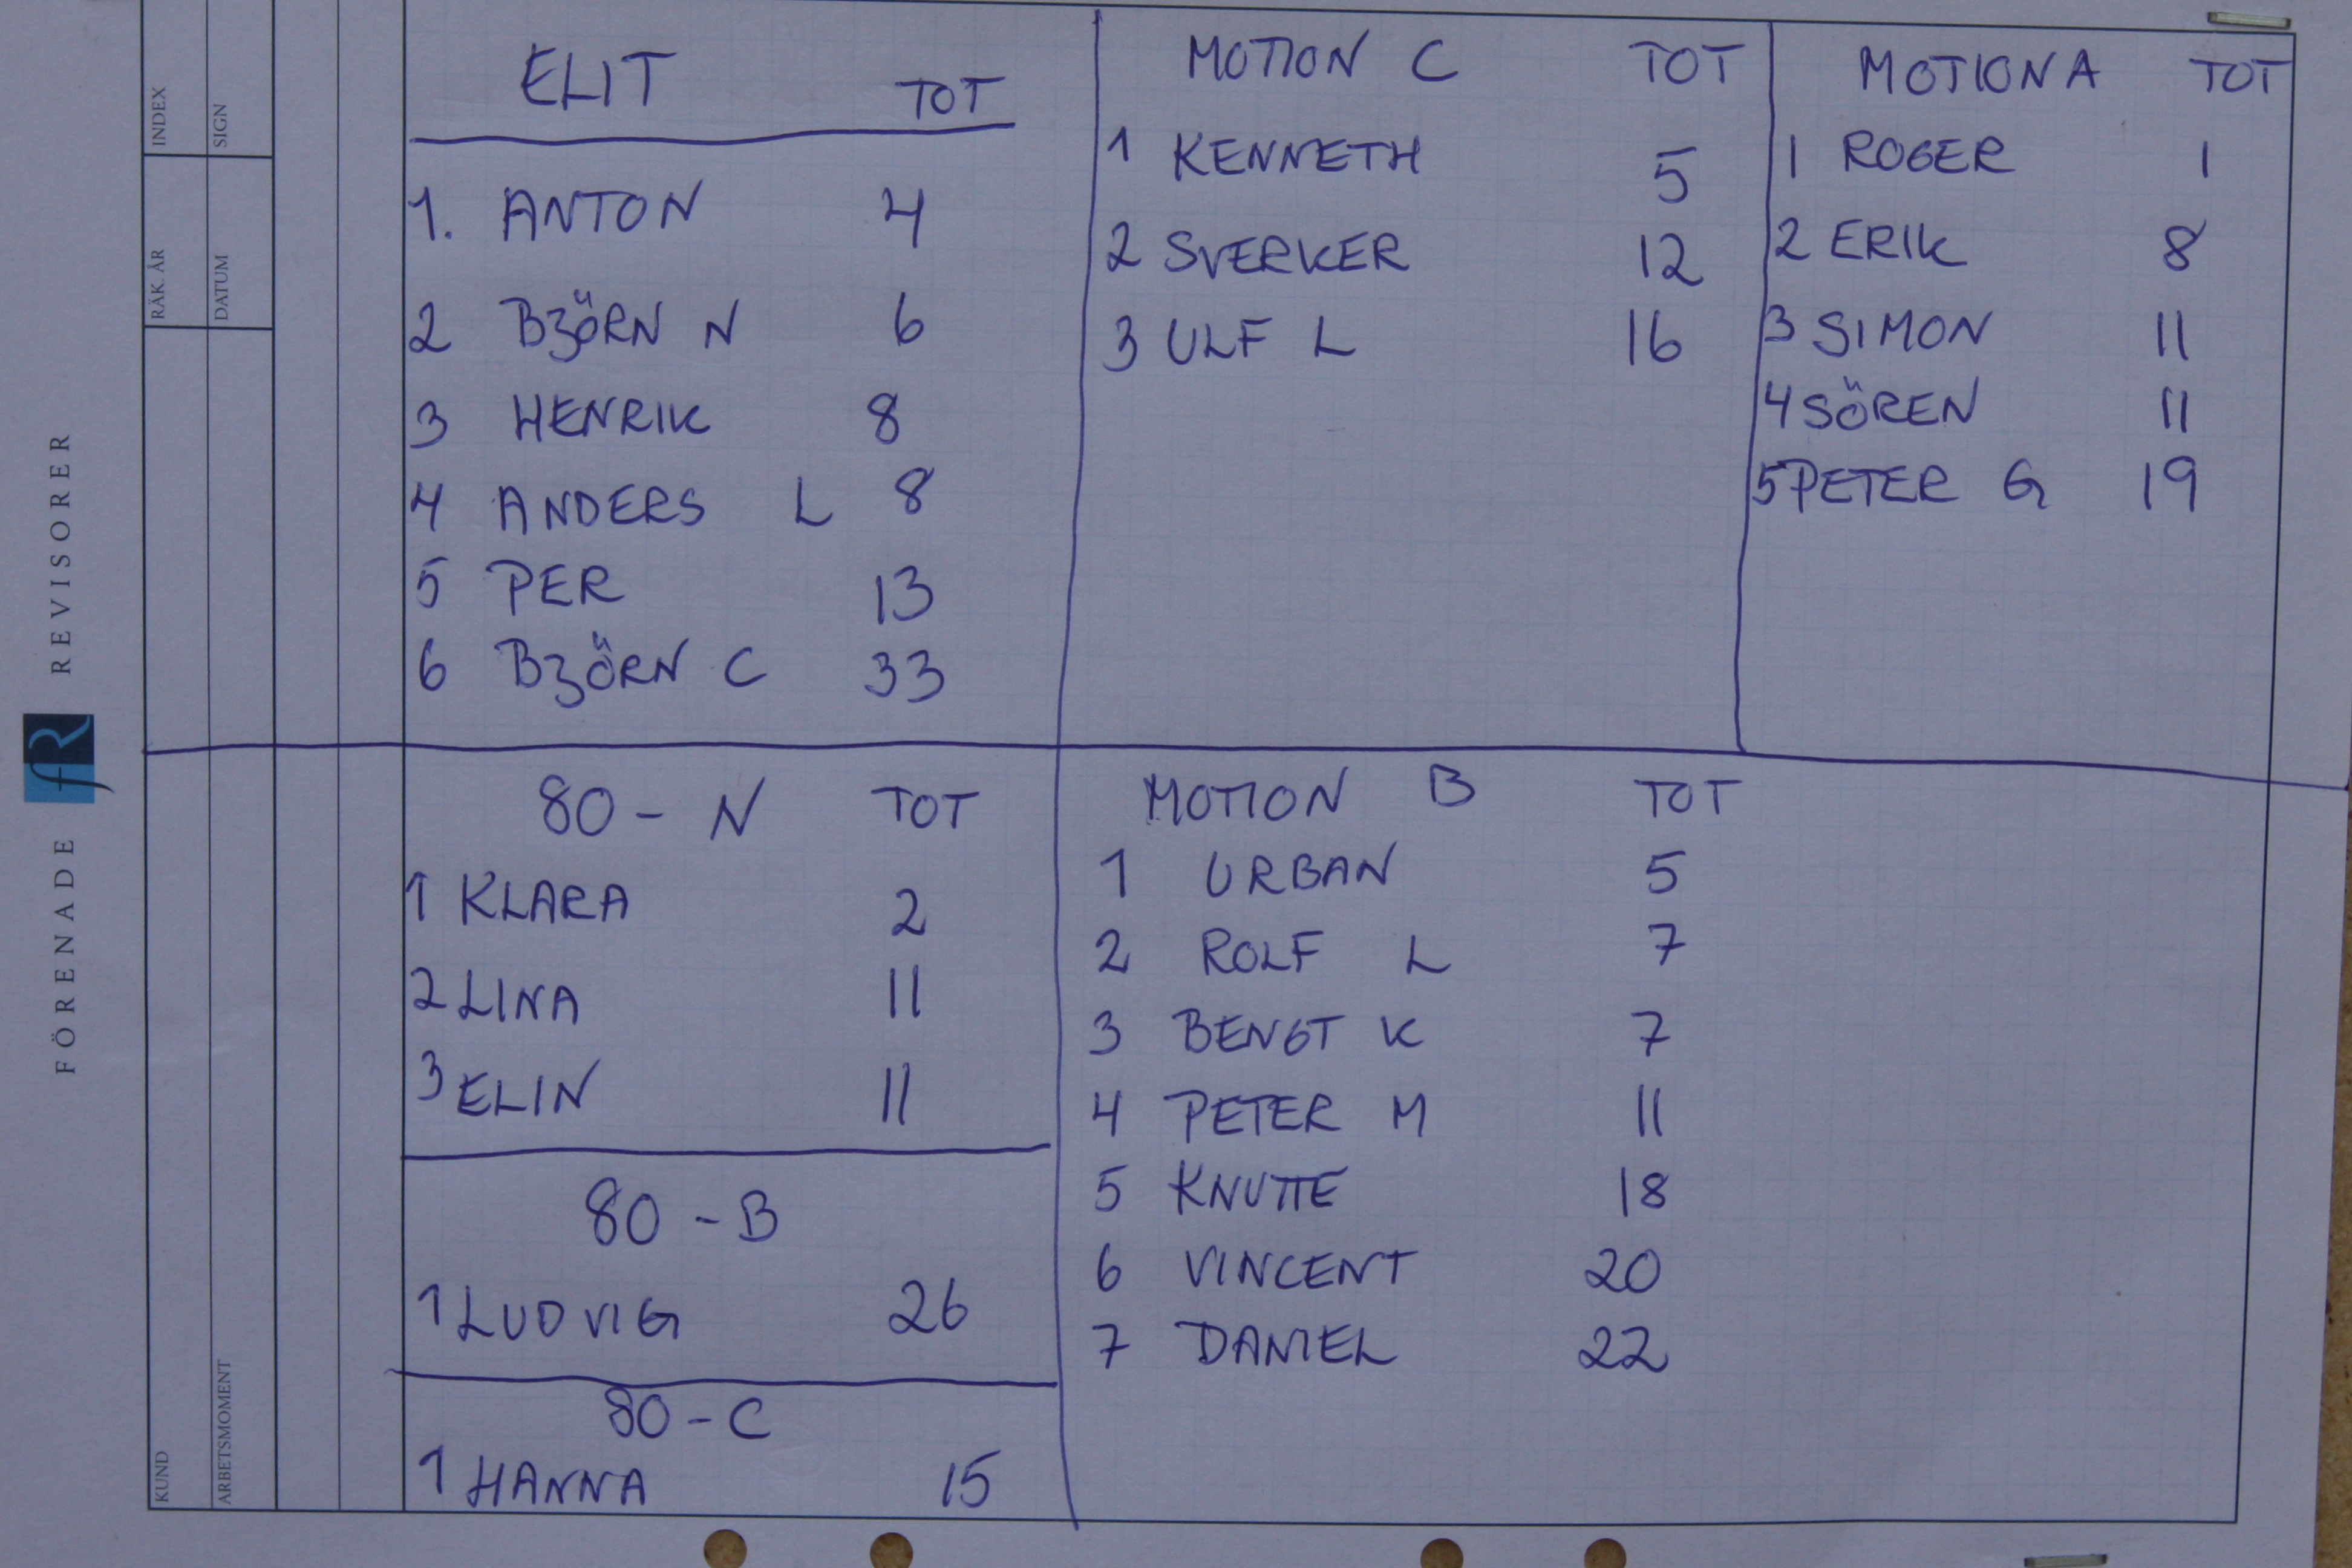 ELIT TOT
1. ANTON 4
2 BJÖRN N 6
3 HENRIK 8
4 ANDERS L 8
5 PER 13
6 BJÖRN C 33
MOTION C TOT
1 KENNETH 5
2 SVERKER 12
3 ULF L 16
MOTION A TOT
1 ROGER 1
2 ERIK 8
3 SIMON 11
4 SÖREN 11
5 PETER G 19
80 - N TOT
1 KLARA 2
2 LINA 11
3 ELIN 11
80 - B
1 LUDVIG 26
80 - C
1 HANNA 15
MOTION B TOT
1 URBAN 5
2 ROLF L 7
3 BENGT K 7
4 PETER M 11
5 KNUTTE 18
6 VINCENT 20
7 DANIEL 22
FÖRENADE fR REVISORER
KUND
RÄK. ÅR
INDEX
ARBETSMOMENT
DATUM
SIGN